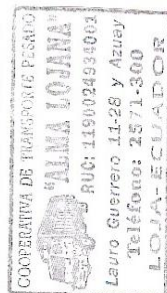 COOPERATIVA DE TRANSPORTE PESADO
"ALMA LOJANA"
RUC: 1190024930001
Lauro Guerrero 11-28 y Azuay
Teléfono: 2571-300
LOJA-ECUADOR